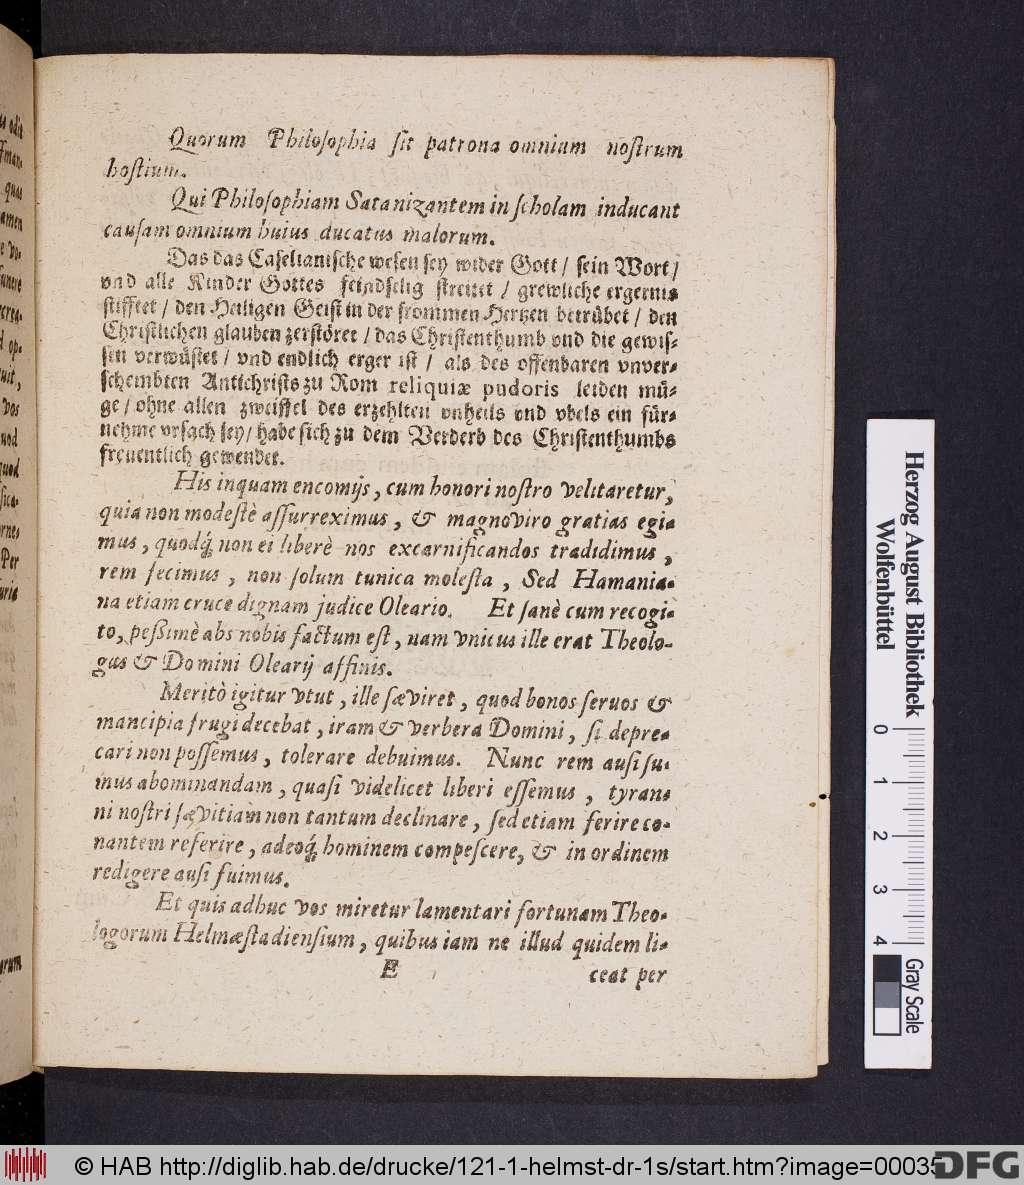 Quorum Philosophia sit patrona omnium nostrum
hostium.
Qui Philosophiam Satanizantem in scholam inducant
causam omnium huius ducatus malorum.
Das das Caselianische wesen sey wider Gott / sein Wort /
vnd alle Kinder Gottes feindselig streitet / grewliche ergernis
stifftet / den Heiligen Geist in der frommen Hertzen betrübet / den
Christlichen glauben zerstöret / das Christenthumb vnd die gewis-
sen verwüstet / vnd endlich erger ist / als des offenbaren vnver-
schembten Antichrists zu Rom reliquiæ pudoris leiden mü-
ge / ohne allen zweiffel des erzehlten vnheils vnd vbels ein für-
nehme vrsach sey / habe sich zu dem Verderb des Christenthumbs
freuentlich gewendet.
His inquam encomijs, cum honori nostro velitaretur,
quia non modestè assurreximus, & magno viro gratias egi-
mus, quodq́; non ei liberè nos excarnificandos tradidimus,
rem fecimus, non solum tunica molesta, Sed Hamania-
na etiam cruce dignam judice Oleario. Et sanè cum recogi-
to, peßimè abs nobis factum est, nam vnicus ille erat Theolo-
gus & Domini Olearij affinis.
Meritò igitur vtut, ille sæviret, quod bonos seruos &
mancipia frugi decebat, iram & verbera Domini, si depre-
cari non possemus, tolerare debuimus. Nunc rem ausi su-
mus abominandam, quasi videlicet liberi essemus, tyran-
ni nostri sævitiam non tantum declinare, sed etiam ferire co-
nantem referire, adeoq́; hominem compescere, & in ordinem
redigere ausi fuimus.
Et quis adhuc vos miretur lamentari fortunam Theo-
logorum Helmæstadiensium, quibus iam ne illud quidem li-
E ceat per
Herzog August Bibliothek
Wolfenbüttel
0 1 2 3 4
Gray Scale
© HAB http://diglib.hab.de/drucke/121-1-helmst-dr-1s/start.htm?image=00035
DFG